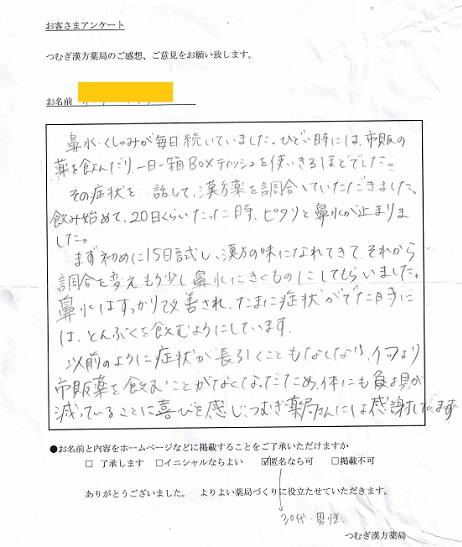 お客さまアンケート
つむぎ漢方薬局のご感想、ご意見をお願い致します。
お名前
鼻水・くしゃみが毎日続いていました。ひどい時には、市販の
薬を飲んだり、一日一箱BOXティッシュを使いきるほどでした。
その症状を、話して、漢方薬を調合していただきました。
飲み始めて、20日くらいたった時、ピタリと鼻水が止まりま
した。
まず初めに15日試し、漢方の味になれてきて、それから
調合を変え、もう少し鼻水にきくものにしてもらいました。
鼻水はすっかり改善され、たまに症状がでた時に
は、とんぷくを飲むようにしています。
以前のように症状が長引くこともなくなり、何より
市販薬を飲むことがなくなったため、体にも負担が
減っていることに喜びを感じ、つむぎ薬局さんには感謝しています
●お名前と内容をホームページなどに掲載することをご了承いただけますか
□ 了承します □イニシャルならよい ☑匿名なら可 □掲載不可
ありがとうございました。 よりよい薬局づくりに役立たせていただきます。
30代・男性
つむぎ漢方薬局